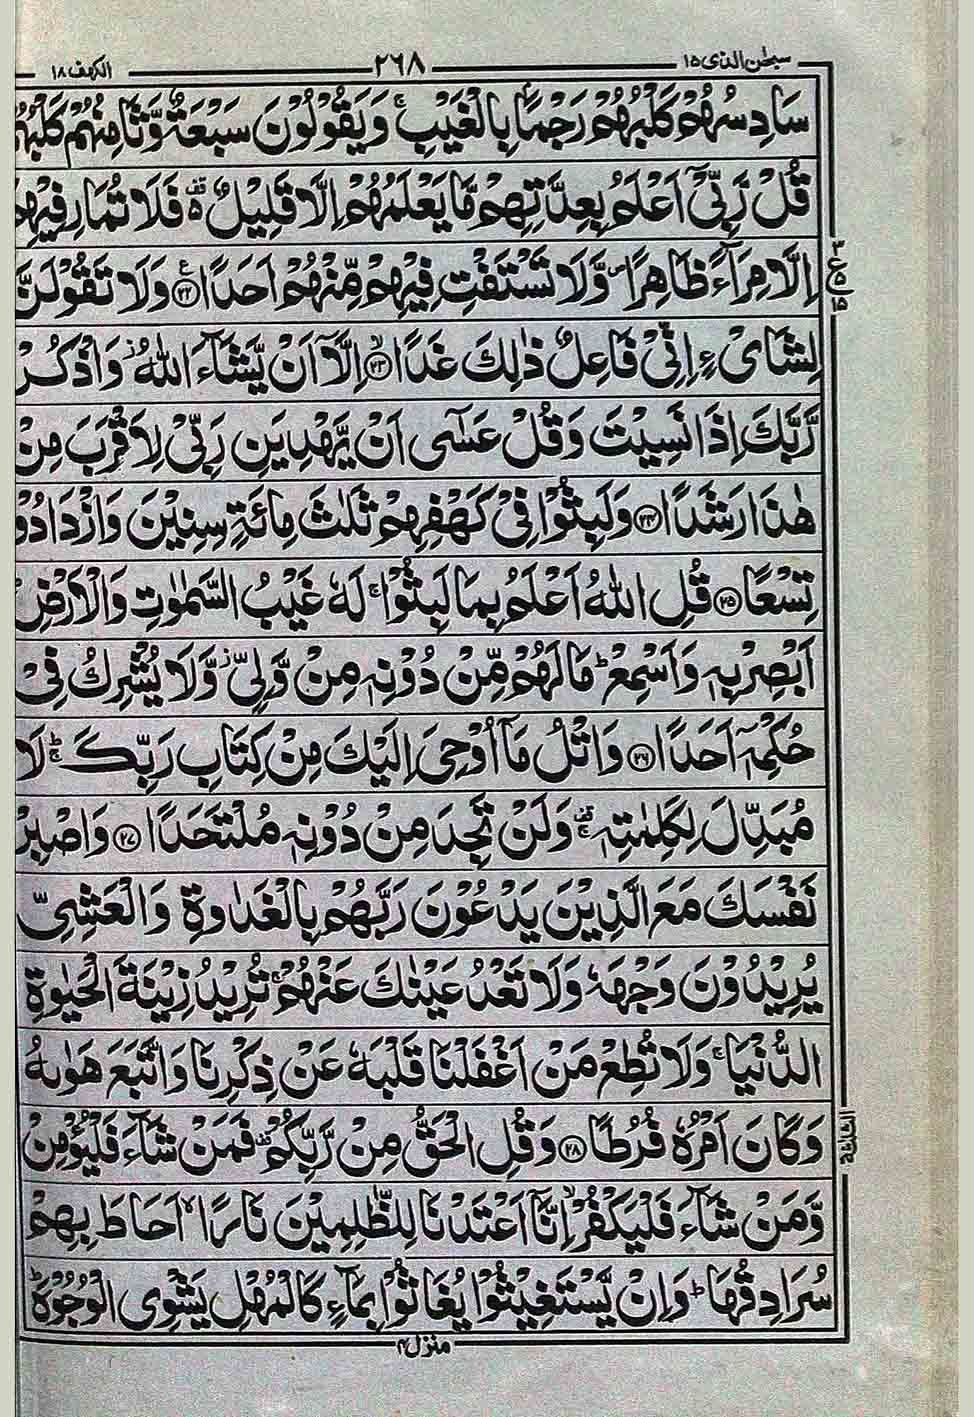 سبحٰن الذی ۱۵
۲۶۸
الکہف ۱۸
سَادِسُهُمْ كَلْبُهُمْ رَجْمًۢا بِالْغَیْبِ ۚ وَیَقُوْلُوْنَ سَبْعَةٌ وَّثَامِنُهُمْ كَلْبُهُ
قُلْ رَّبِّیْۤ اَعْلَمُ بِعِدَّتِهِمْ مَّا یَعْلَمُهُمْ اِلَّا قَلِیْلٌ ۫۬ فَلَا تُمَارِ فِیْهِمْ
اِلَّا مِرَآءً ظَاهِرًا ۪ وَّلَا تَسْتَفْتِ فِیْهِمْ مِّنْهُمْ اَحَدًا ۟۠﴿۲۲﴾ وَلَا تَقُوْلَنَّ
لِشَایْءٍ اِنِّیْ فَاعِلٌ ذٰلِكَ غَدًا ۙ﴿۲۳﴾ اِلَّاۤ اَنْ یَّشَآءَ اللّٰهُ ؗ وَاذْكُرْ
رَّبَّكَ اِذَا نَسِیْتَ وَقُلْ عَسٰۤی اَنْ یَّهْدِیَنِ رَبِّیْ لِاَقْرَبَ مِنْ
هٰذَا رَشَدًا ﴿۲۴﴾ وَلَبِثُوْا فِیْ كَهْفِهِمْ ثَلٰثَ مِائَةٍ سِنِیْنَ وَازْدَادُوْ
تِسْعًا ﴿۲۵﴾ قُلِ اللّٰهُ اَعْلَمُ بِمَا لَبِثُوْا ۚ لَهٗ غَیْبُ السَّمٰوٰتِ وَالْاَرْضِ
اَبْصِرْ بِهٖ وَاَسْمِعْ ؕ مَا لَهُمْ مِّنْ دُوْنِهٖ مِنْ وَّلِیٍّ ؗ وَّلَا یُشْرِكُ فِیْ
حُكْمِهٖۤ اَحَدًا ﴿۲۶﴾ وَاتْلُ مَاۤ اُوْحِیَ اِلَیْكَ مِنْ كِتَابِ رَبِّكَ ؕۚ لَا
مُبَدِّلَ لِكَلِمٰتِهٖ ۫ۚ وَلَنْ تَجِدَ مِنْ دُوْنِهٖ مُلْتَحَدًا ﴿۲۷﴾ وَاصْبِرْ
نَفْسَكَ مَعَ الَّذِیْنَ یَدْعُوْنَ رَبَّهُمْ بِالْغَدٰوةِ وَالْعَشِیِّ
یُرِیْدُوْنَ وَجْهَهٗ وَلَا تَعْدُ عَیْنٰكَ عَنْهُمْ ۚ تُرِیْدُ زِیْنَةَ الْحَیٰوةِ
الدُّنْیَا ۚ وَلَا تُطِعْ مَنْ اَغْفَلْنَا قَلْبَهٗ عَنْ ذِكْرِنَا وَاتَّبَعَ هَوٰىهُ
وَكَانَ اَمْرُهٗ فُرُطًا ﴿۲۸﴾ وَقُلِ الْحَقُّ مِنْ رَّبِّكُمْ ۫ فَمَنْ شَآءَ فَلْیُؤْمِنْ
وَّمَنْ شَآءَ فَلْیَكْفُرْ ۙ اِنَّاۤ اَعْتَدْنَا لِلظّٰلِمِیْنَ نَارًا ۙ اَحَاطَ بِهِمْ
سُرَادِقُهَا ؕ وَاِنْ یَّسْتَغِیْثُوْا یُغَاثُوْا بِمَآءٍ كَالْمُهْلِ یَشْوِی الْوُجُوْهَ ؕ
۳
ع
۱۵
منزل ۴